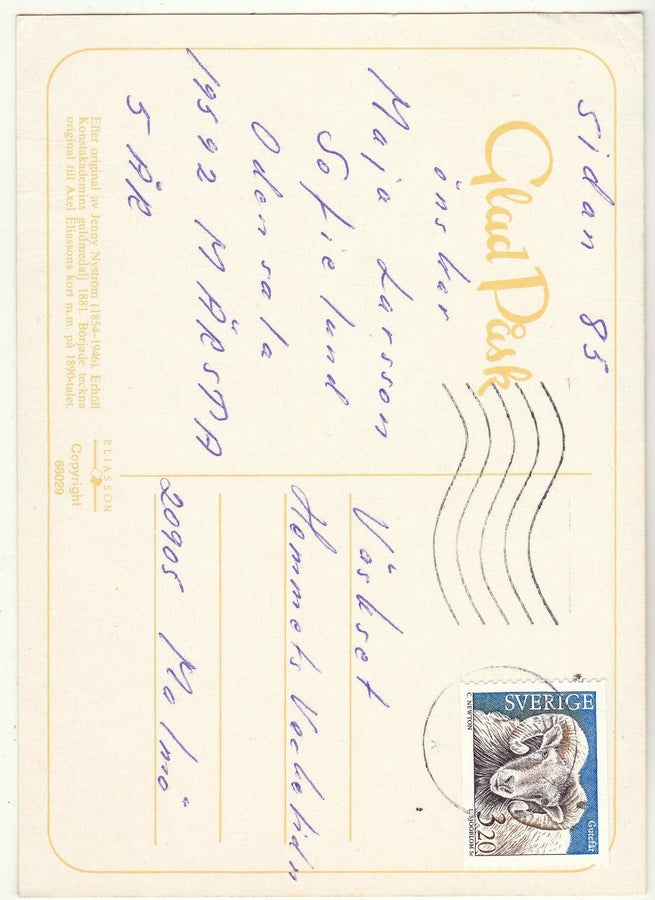 Sidan 85
Glad Påsk
önskar
Maja Larsson
Sofielund
Odensala
19592 MÄRSTA
5 ÅR
Efter original av Jenny Nyström (1854–1946). Erhöll
Konstakademins guldmedalj 1881. Började teckna
original till Axel Eliassons kort m.m. på 1890-talet.
ELIASSON
Copyright
68029
Växset
Hemmets Veckotidn
20905 Malmö
SVERIGE
Gutefår
3,20
C. NEWTON